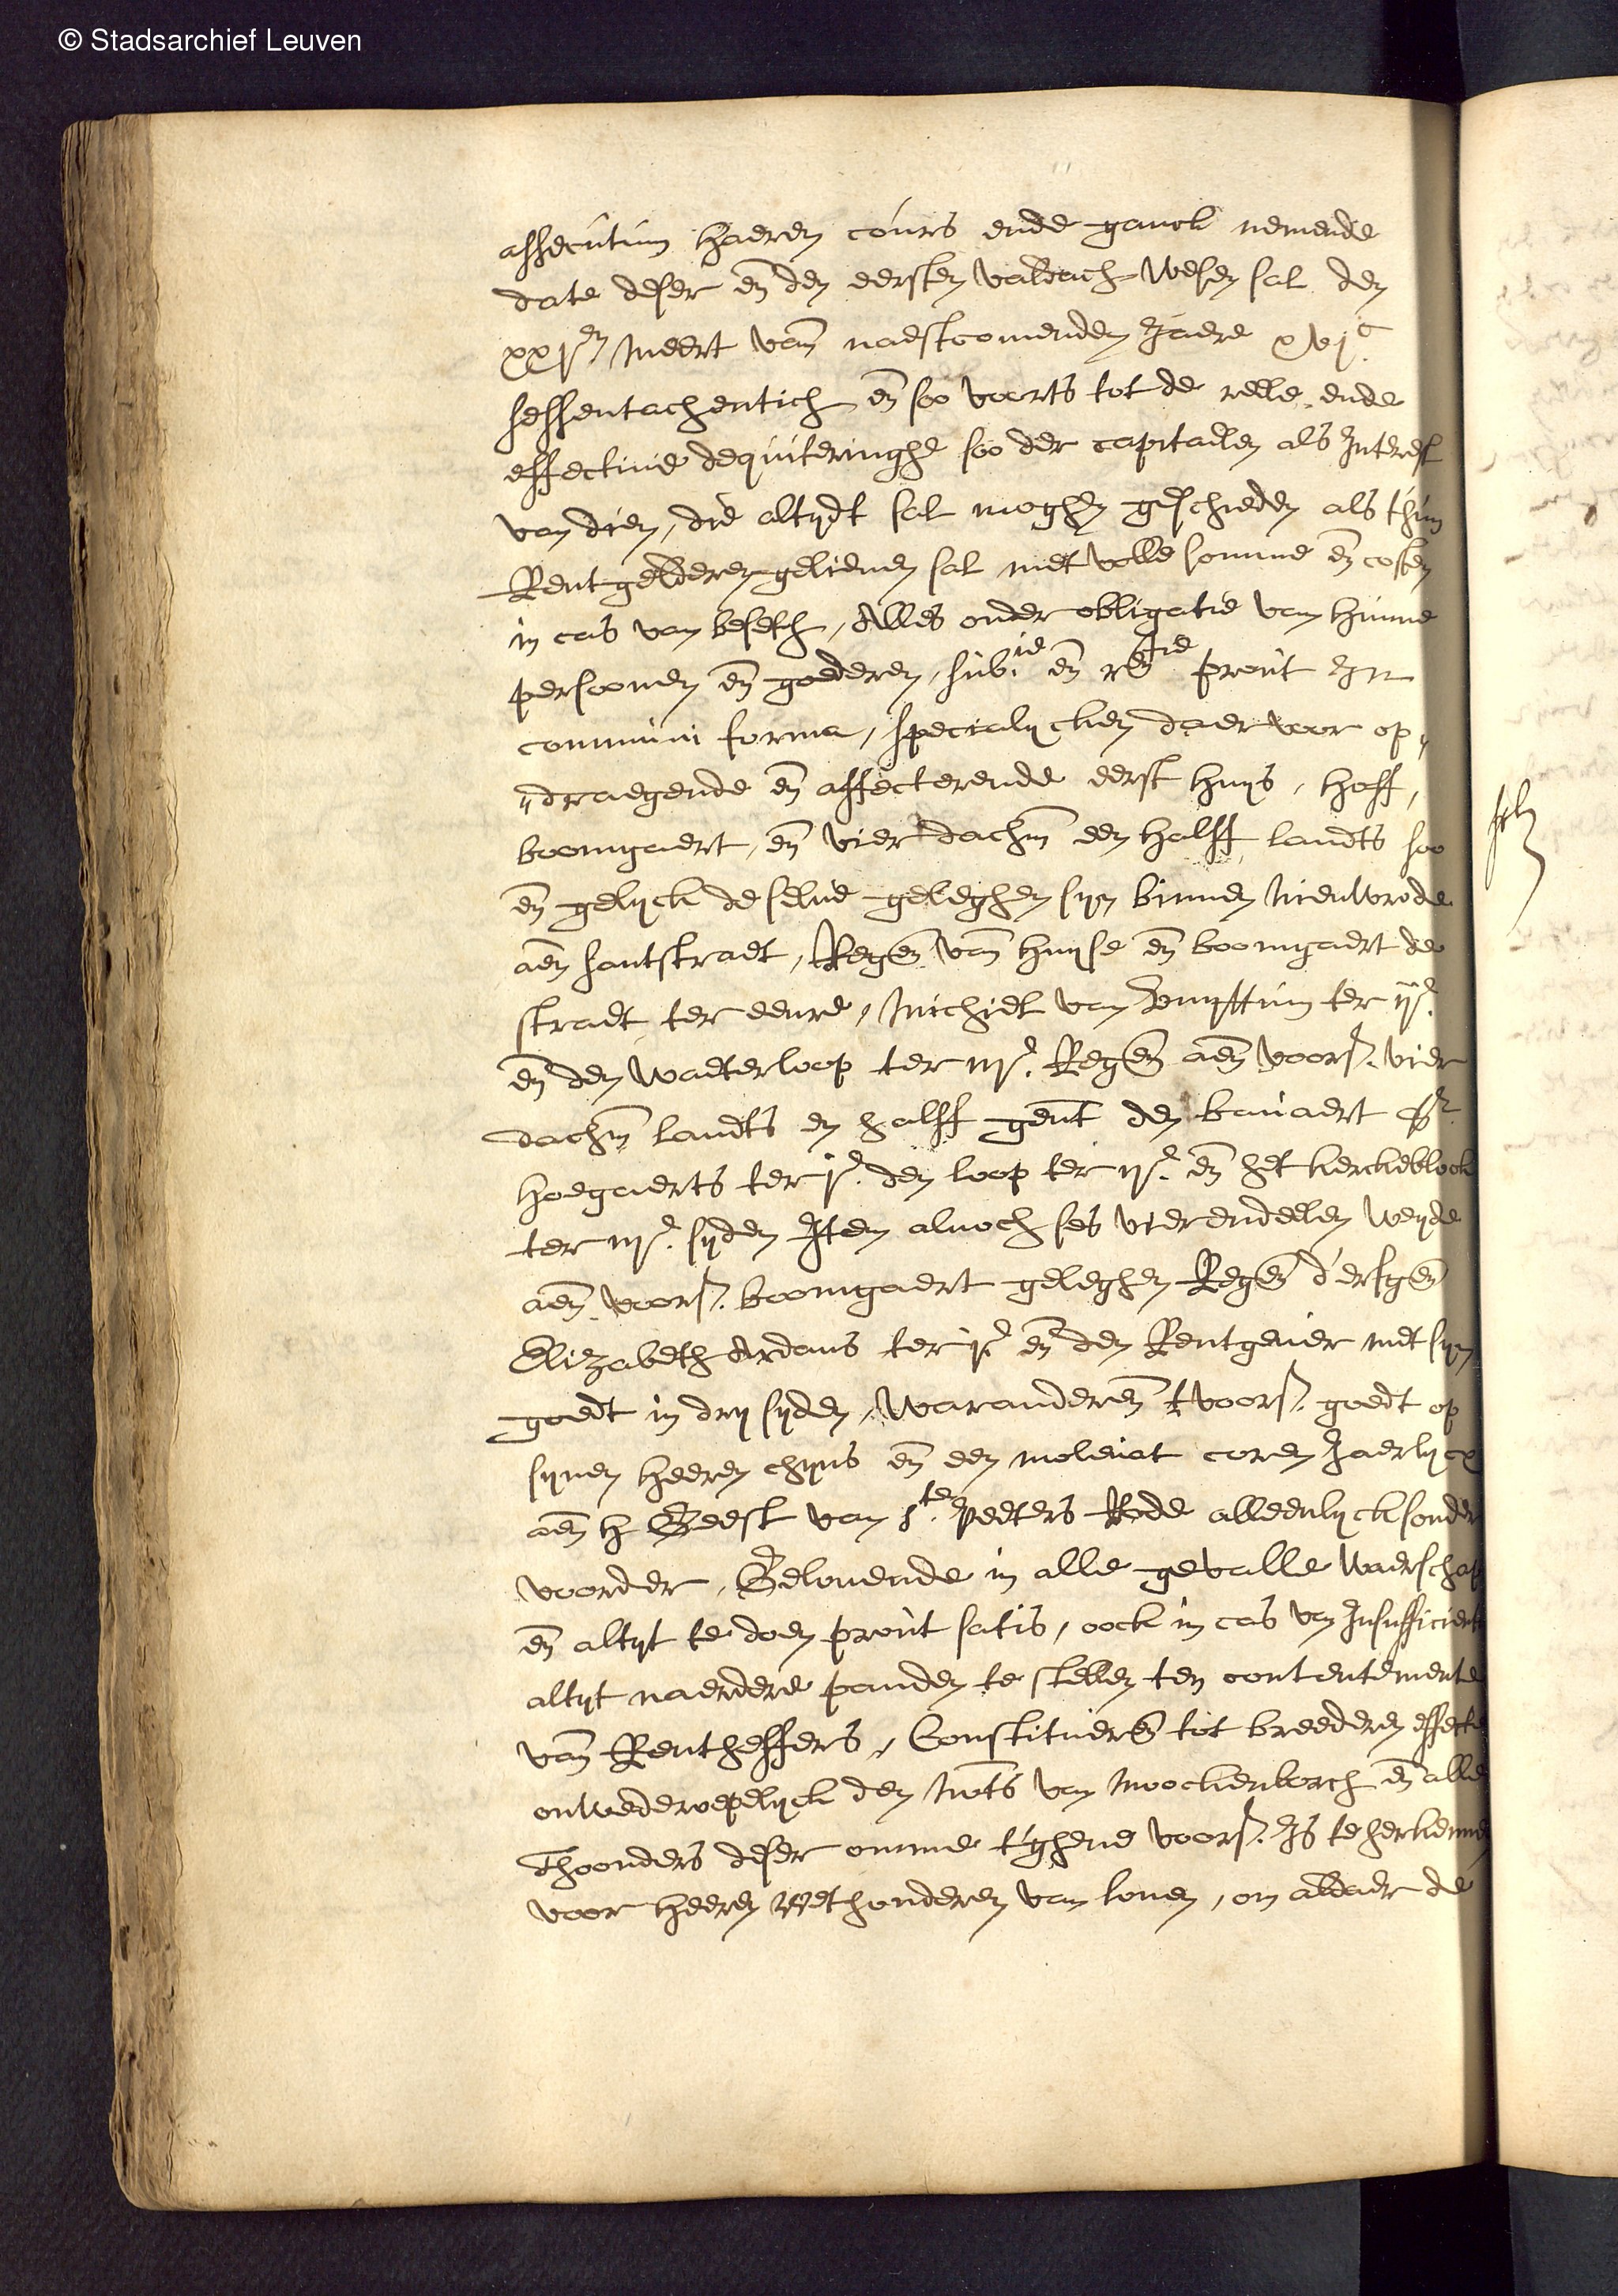 © Stadsarchief Leuven
assecutum haeren cours ende ganck nemende
date deser en den eersten valdach wesen sal den
xxjen meert van naestcomenden Jaere xvjc
sessentachentich en soo voorts tot de reele ende
effective dequiteringhe soo der capitaelen als Interest
van dien, die altydt sal moghen geschieden als thun
Rentgelderen gelieven sal met volle somme en costen
in cas van beseth, Alles onder obligatie van hunne
persoonen en goederen, sub.ie en re.tie prout In
communi forma, specialycken daer voor op„
„draegende en affecterende eerst huys, hoff,
boomgaert, en vier dachm een halff landts soo
en gelyck de selve geleghen syn binnen nieuwrode
aen santstraet, Regen van huyse en boomgaert de
straet ter eenre, Michiel van ter ije.
en den waeterloop ter iije. Regen aen voors. vier
dachm landts en halff gent den banaert
hoegaerts ter je. den loop ter ije. en het kerckeblock
ter iije. syden Item alnoch ses vierendeelen weyde
aen voors. boomgaert geleghen Regen d'erfgen
Elizabeth Ardans ter je en den Rentgever met syn
goedt in dry syden, waranderen tvoors. goedt op
synen heeren chyns en een molevat coren Jaerlycx
aen h Geest van s.ten Peeters Rode alleenlyck sonder
voorder, Gelovende in alle gevalle waerschap
en altyt te doen prout satis, oock in cas van Insufficientie
altyt naerdere panden te stellen ten contentemente
van Rentheffers, Constitueren tot breederen effecte
onwederoepelyck den Nots van Moockenborch en alle
Thoonders deser omme t'ghene voors. Is te herkennen
voor heeren Wethouderen van loven, om aldaer de